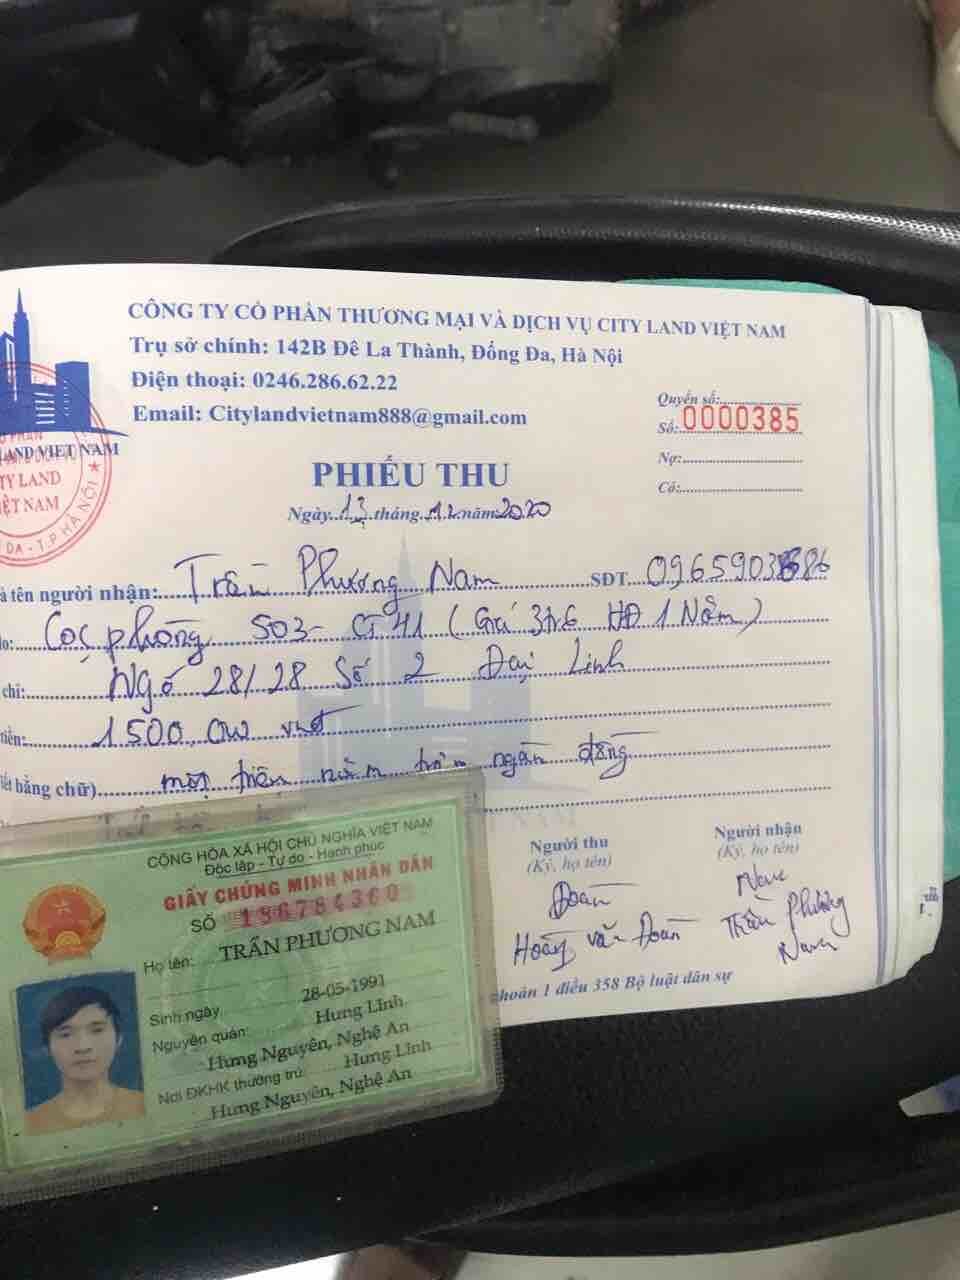 CÔNG TY CỔ PHẦN THƯƠNG MẠI VÀ DỊCH VỤ CITY LAND VIỆT NAM
Trụ sở chính: 142B Đê La Thành, Đống Đa, Hà Nội
Điện thoại: 0246.286.62.22
Email: Citylandvietnam888@gmail.com
Quyển số:
Số: 0000385
Nợ:
Có:
LAND VIET NAM
TY LAND
IỆT NAM
DA - T.P HÀ NỘI
PHIẾU THU
Ngày 13 tháng 12 năm 2020
à tên người nhận: Trần Phương Nam SĐT
o: Cọc phòng 503 - CT 41 (Giá 3tr6 HĐ 1 Năm)
chỉ: Ngõ 28/28 Số 2 Đại Linh
tiền: 1500.000 vnđ
iết bằng chữ) một triệu năm trăm ngàn đồng
Người thu
(Ký, họ tên)
Đoàn
Hoàng văn Đoàn
Người nhận
(Ký, họ tên)
Nam
Trần Phương
Nam
khoản 1 điều 358 Bộ luật dân sự
CỘNG HÒA XÃ HỘI CHỦ NGHĨA VIỆT NAM
Độc lập - Tự do - Hạnh phúc
GIẤY CHỨNG MINH NHÂN DÂN
SỐ 186784360
Họ tên: TRẦN PHƯƠNG NAM
Sinh ngày 28-05-1991
Nguyên quán: Hưng Lĩnh
Hưng Nguyên, Nghệ An
Nơi ĐKHK thường trú: Hưng Lĩnh
Hưng Nguyên, Nghệ An